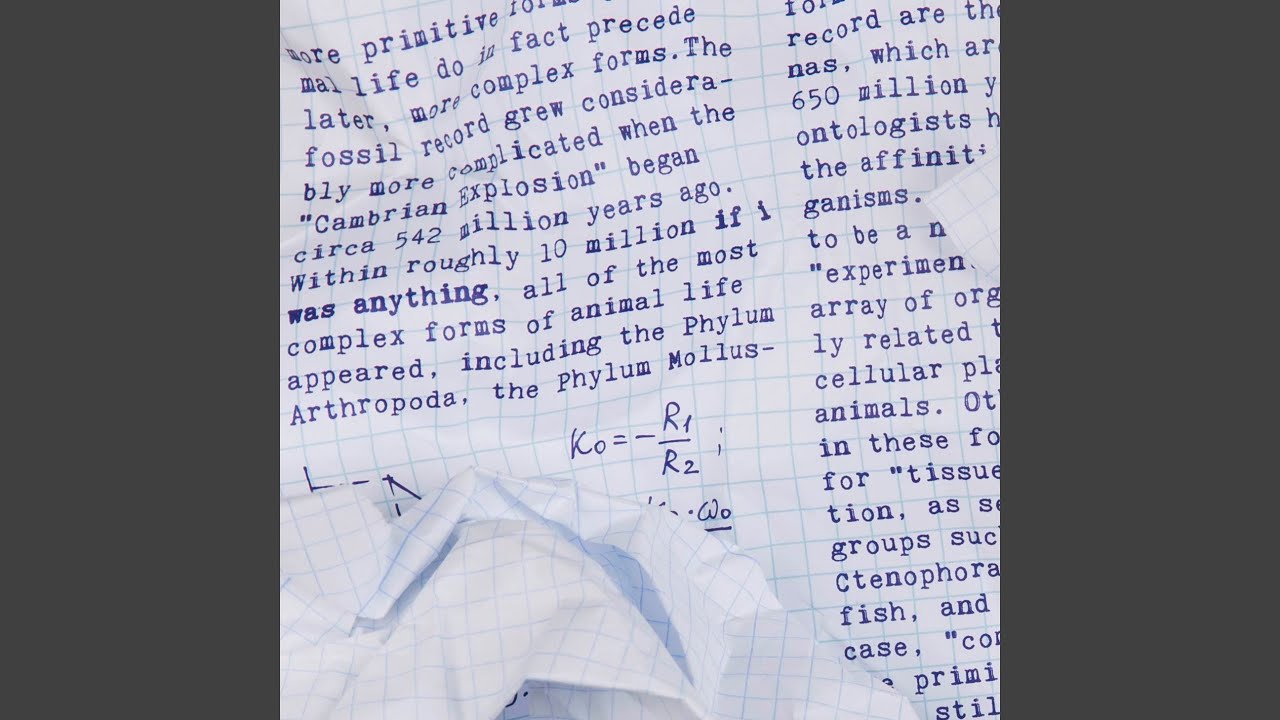 more primitive
mal life do in fact precede
later, more complex forms.The
fossil record grew considera-
bly more complicated when the
"Cambrian Explosion" began
circa 542 million years ago.
Within roughly 10 million if i
was anything, all of the most
complex forms of animal life
appeared, including the Phylum
Arthropoda, the Phylum Mollus-
K₀=-R₁/R₂;
·ω₀
record are the
nas, which are
650 million y
ontologists h
the affiniti
ganisms.
to be a n
"experimen
array of org
ly related t
cellular pla
animals. Ot
in these fo
for "tissue
tion, as se
groups suc
Ctenophora
fish, and
case, "co
primi
stil